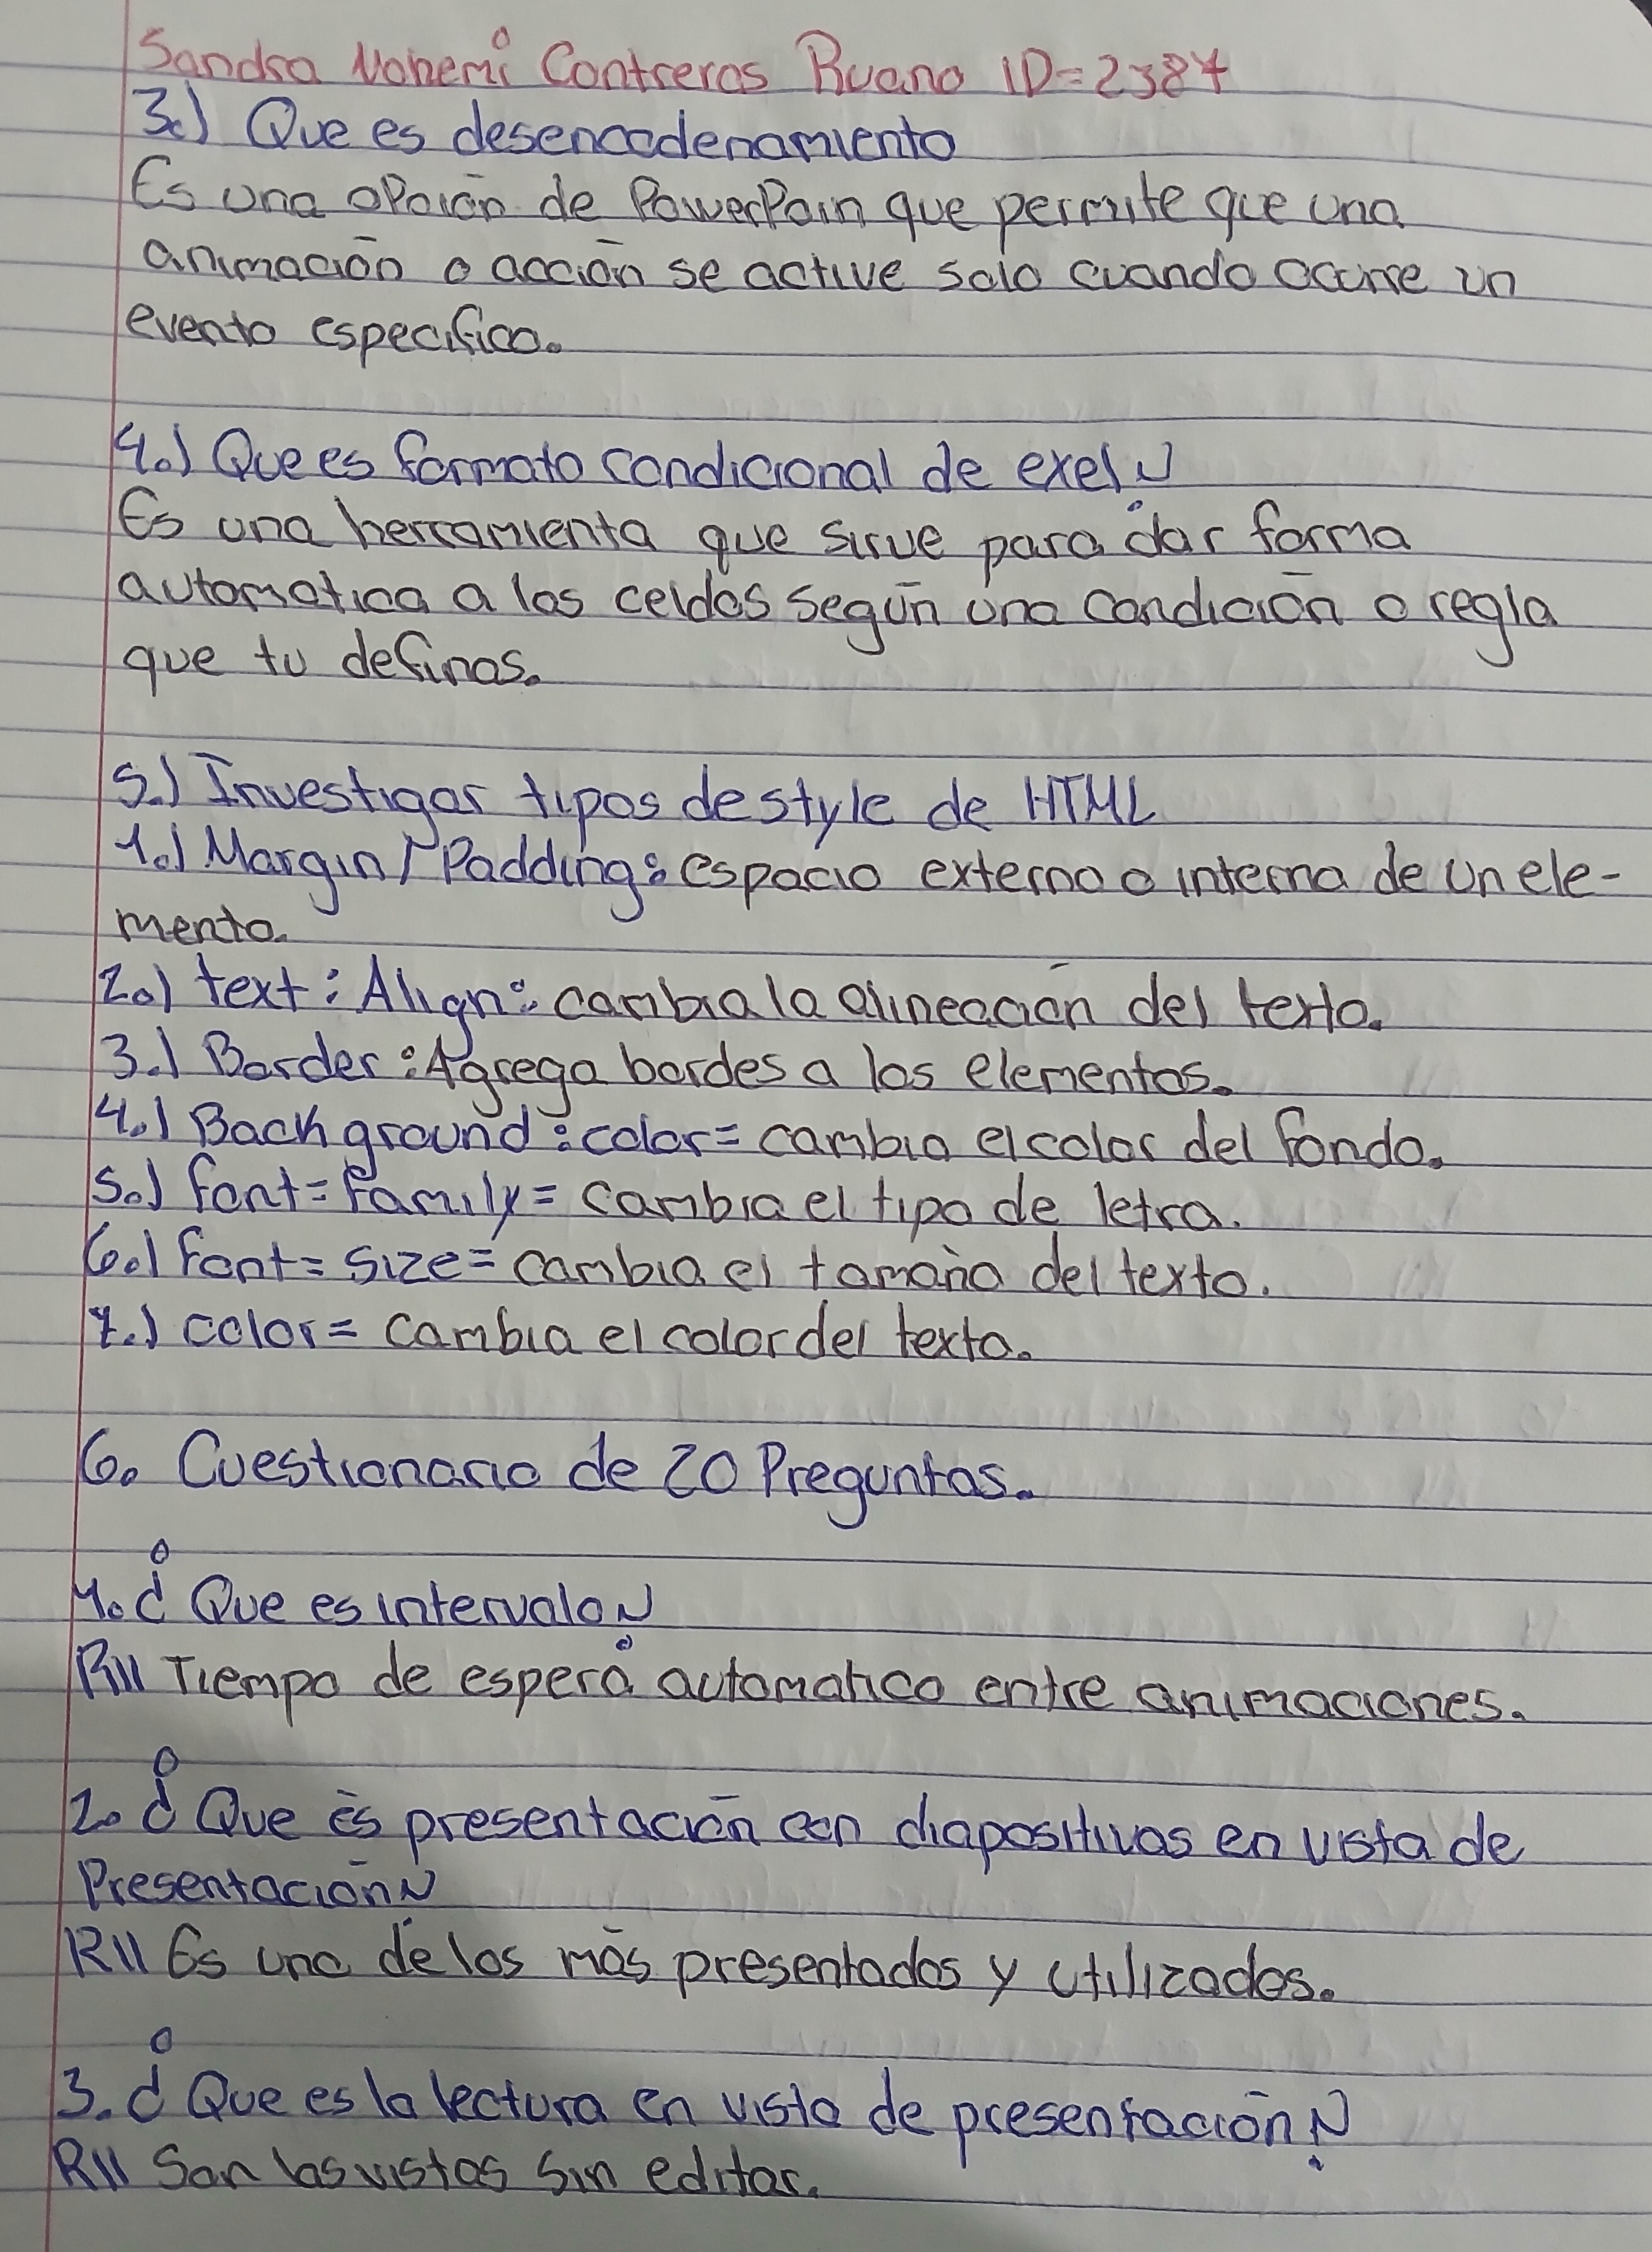 Sandra Nohemí Contreras Ruano ID=2387
3.) Que es desencadenamiento
Es una opción de PowerPoin que permite que una
animación o acción se active solo cuando ocurre un
evento especifico.
4.) Que es formato condicional de exel?
Es una herramienta que sirve para dar forma
automatica a las celdas según una condición o regla
que tu definas.
5.) Investigar tipos de style de HTML
1.) Margin / Padding: espacio externo o interno de un ele-
mento.
2.) text: Align: cambia la alineación del texto.
3.) Border: Agrega bordes a los elementos.
4.) Back ground: color= cambia el color del fondo.
5.) font= family= cambia el tipo de letra.
6.) Font= size= cambia el tamaño del texto.
7.) color= cambia el color del texto.
6. Cuestionario de 20 Preguntas.
1. ¿Que es intervalo?
R// Tiempo de espera automatico entre animaciones.
2. ¿Que es presentación con diapositivas en vista de
Presentación?
R// Es uno de los más presentados y utilizados.
3. ¿Que es la lectura en vista de presentación?
R// Son las vistas sin editar.